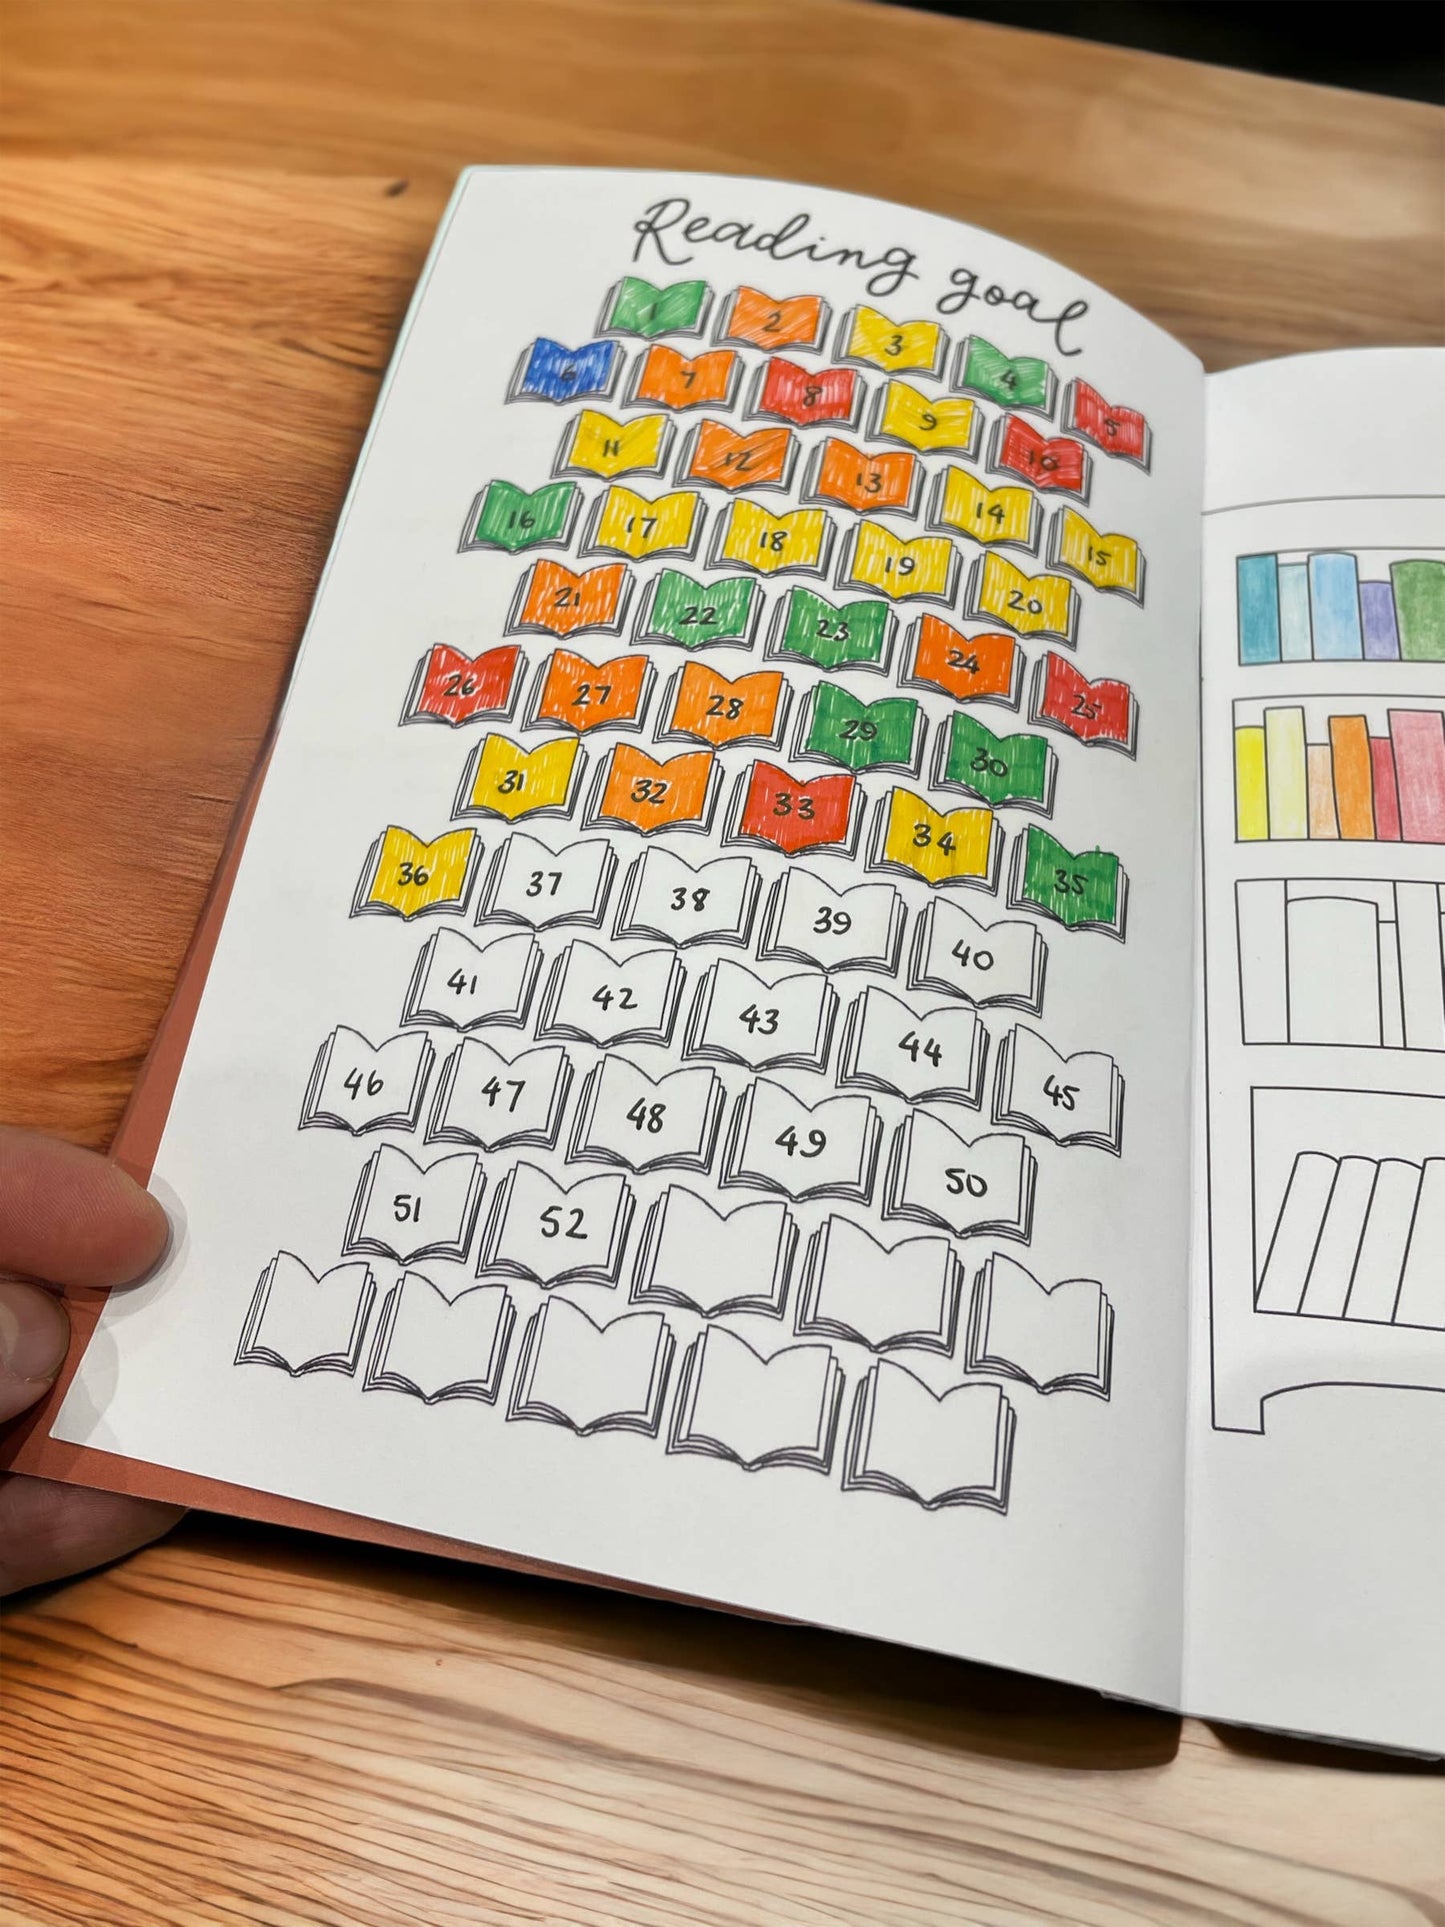 Reading goal
1 2 3 4 5
6 7 8 9 10
11 12 13 14 15
16 17 18 19 20
21 22 23 24 25
26 27 28 29 30
31 32 33 34 35
36 37 38 39 40
41 42 43 44 45
46 47 48 49 50
51 52